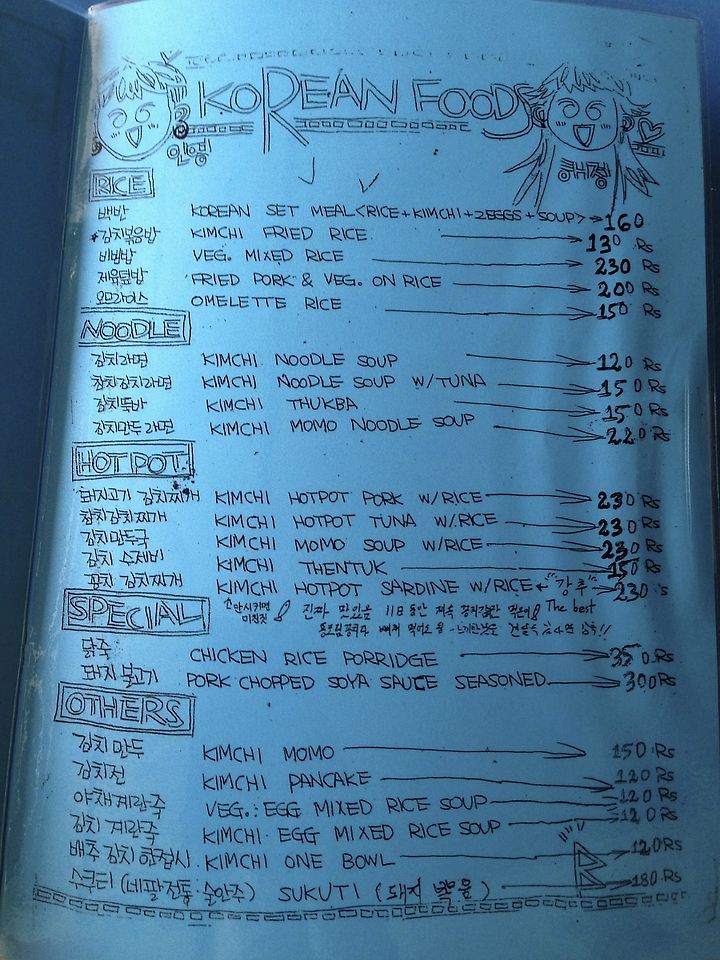 KOREAN FOODS
안녕
RICE
백반 KOREAN SET MEAL <RICE+KIMCHI+2EGGS+SOUP> 160
*김치볶음밥 KIMCHI FRIED RICE 130 Rs
비빔밥 VEG. MIXED RICE 230 Rs
제육덮밥 FRIED PORK & VEG. ON RICE 200 Rs
오므라이스 OMELETTE RICE 150 Rs
NOODLE
김치라면 KIMCHI NOODLE SOUP 120 Rs
참치김치라면 KIMCHI NOODLE SOUP W/TUNA 150 Rs
김치뚝바 KIMCHI THUKBA 150 Rs
김치만두라면 KIMCHI MOMO NOODLE SOUP 220 Rs
HOT POT
돼지고기 김치찌개 KIMCHI HOTPOT PORK W/RICE 230 Rs
참치김치찌개 KIMCHI HOTPOT TUNA W/RICE 230 Rs
김치만두국 KIMCHI MOMO SOUP W/RICE 230 Rs
김치 수제비 KIMCHI THENTUK 150 Rs
꽁치 김치찌개 KIMCHI HOTPOT SARDINE W/RICE "강추" 230 s
안시키면 진짜 맛있음 118동안 먹은 The best
미친짓
SPECIAL
닭죽 CHICKEN RICE PORRIDGE 350 Rs
돼지 불고기 PORK CHOPPED SOYA SAUCE SEASONED 300 Rs
OTHERS
김치만두 KIMCHI MOMO 150 Rs
김치전 KIMCHI PANCAKE 120 Rs
야채계란죽 VEG.: EGG MIXED RICE SOUP 120 Rs
김치 계란죽 KIMCHI EGG MIXED RICE SOUP 120 Rs
배추 김치 한접시 KIMCHI ONE BOWL 120 Rs
수쿠티 (네팔전통 술안주) SUKUTI (돼지 ) 180 Rs